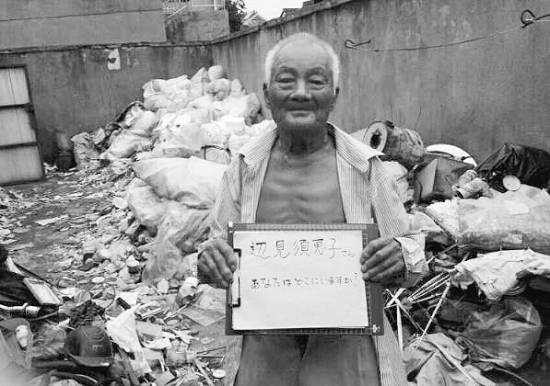 辺見須恵子さん
あなたはどこにいますか?